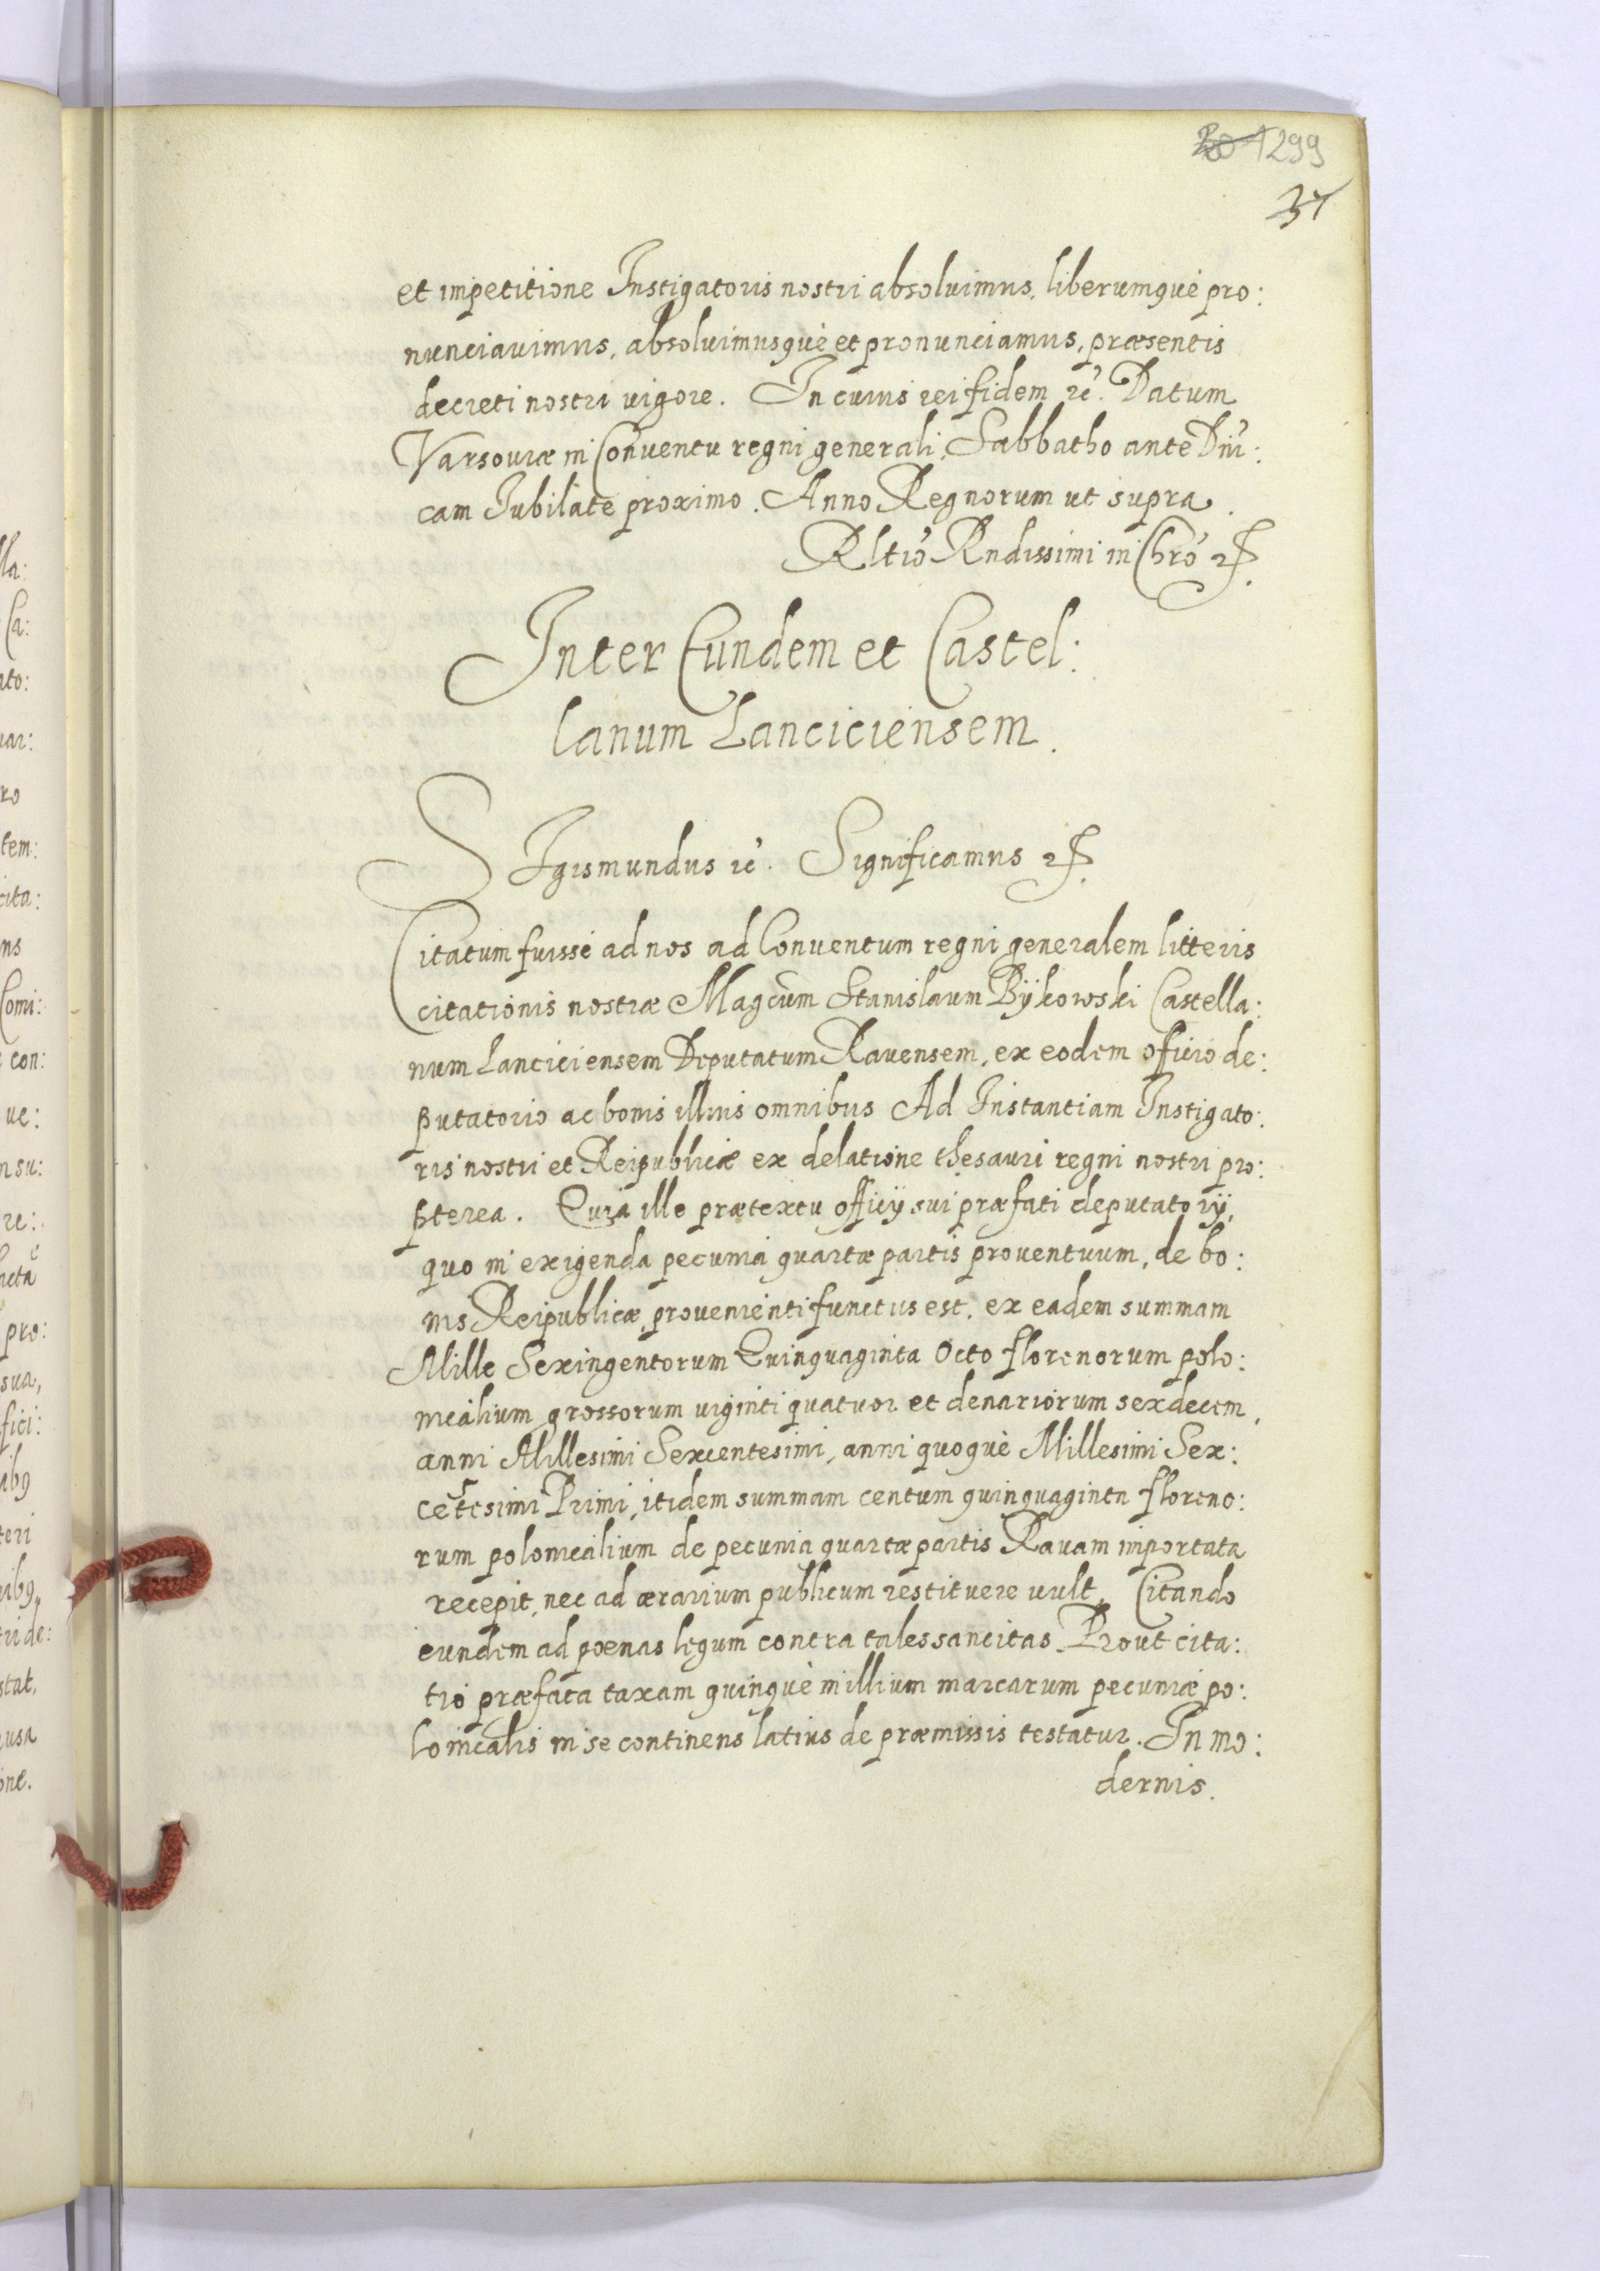 299
37
et impetitione Instigatoris nostri absoluimus, liberumquè pro:
nunciauimus, absoluimusquè et pronunciamus, præsentis
decreti nostri vigore. In cuius rei fidem etc. Datum
Varsouiæ in Conuentu regni generali, Sabbatho ante Dni:
cam Iubilate proximo. Anno Regnorum ut supra.
Rltio Rndissimi in Chro etc.
Inter Eundem et Castel:
lanum Lanciciensem.
SIgismundus etc. Significamus etc.
Citatum fuisse ad nos ad Conuentum regni generalem litteris
citationis nostræ Magcum Stanislaum Bÿkowski Castella:
num Lanciciensem Deputatum Rauensem, ex eodem officio de:
putatorio ac bonis illius omnibus Ad Instantiam Instigato:
ris nostri et Reipublicæ ex delatione thesauri regni nostri pro:
pterea. Quia ille prætextu officÿ sui præfati deputatorÿ,
quo in exigenda pecunia quartæ partis prouentuum, de bo:
nis Reipublicæ, prouenienti functus est, ex eadem summam
Mille Sexingentorum Quinquaginta Octo florenorum polo:
nicalium grossorum viginti quatuor et denariorum sexdecem,
anni Millesimi Sexcentesimi, anni quoquè Millesimi Sex:
centesimi Primi, itidem summam centum quinquaginta floreno:
rum polonicalium de pecunia quartæ partis Rauam importata
recepit, nec ad ærarium publicum restituere vult, Citando
eundem ad pœnas legum contra tales sancitas. Prout cita:
tio præfata taxam quinquè millium marcarum pecuniæ po:
lonicalis in se continens latius de præmissis testatur. In mo:
dernis.